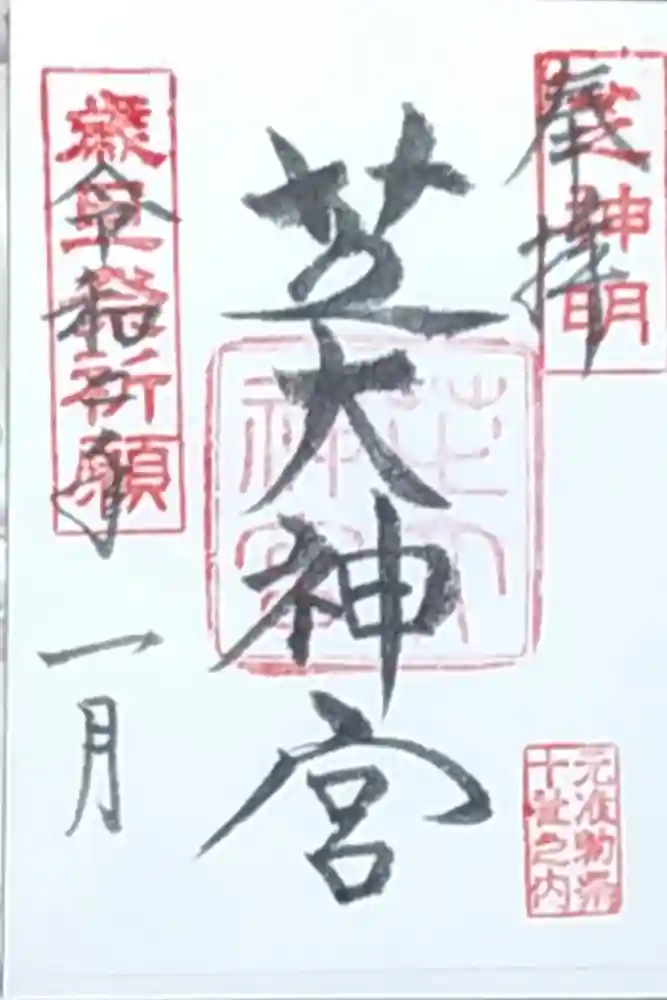 奉拝
芝神明
芝大神宮
芝大神宮
元准勅祭
十社之内
歳旦祭祈願
令和
一月